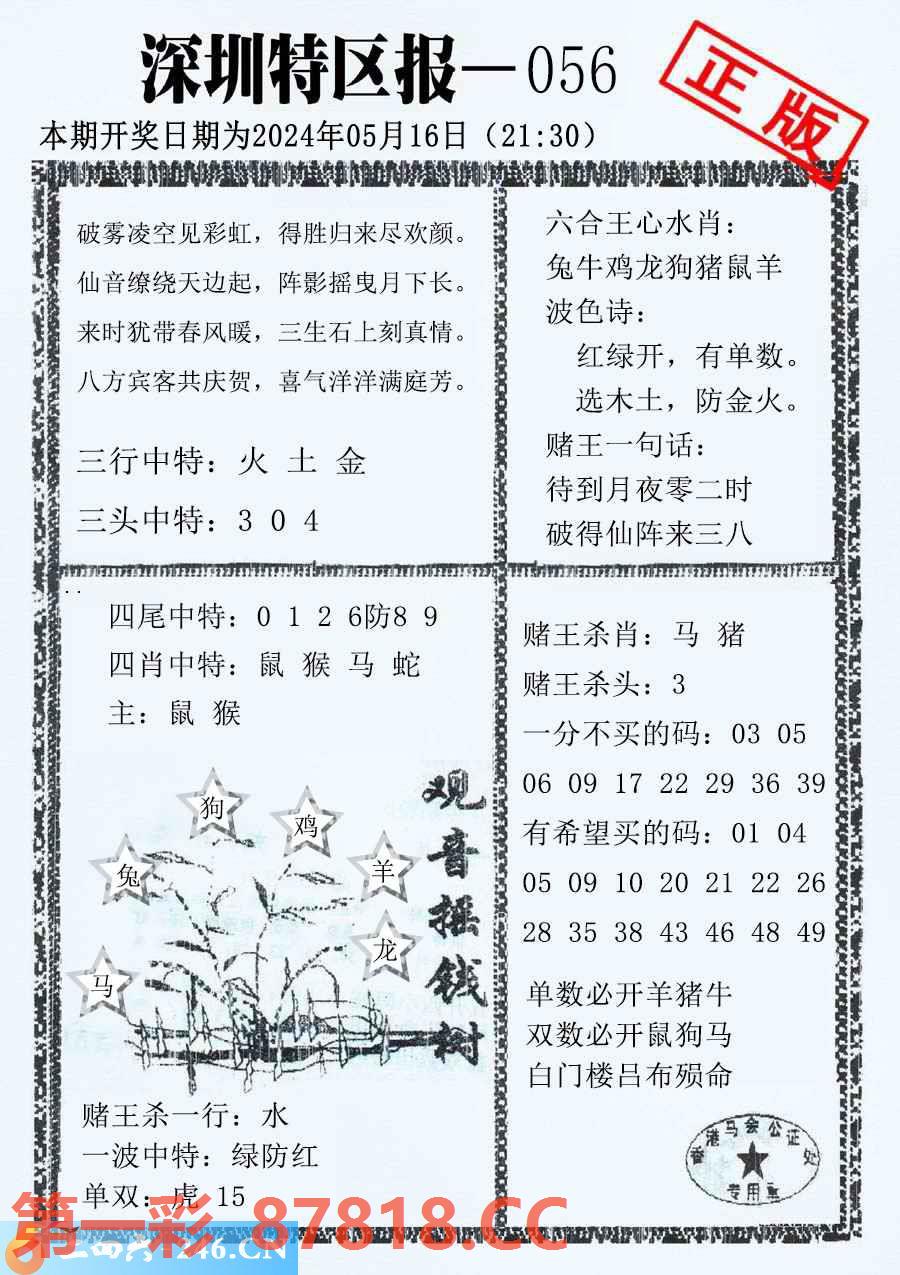 深圳特区报—056
正版
本期开奖日期为2024年05月16日（21:30）
破雾凌空见彩虹，得胜归来尽欢颜。
仙音缭绕天边起，阵影摇曳月下长。
来时犹带春风暖，三生石上刻真情。
八方宾客共庆贺，喜气洋洋满庭芳。
三行中特：火 土 金
三头中特：3 0 4
六合王心水肖：
兔牛鸡龙狗猪鼠羊
波色诗：
红绿开，有单数。
选木土，防金火。
赌王一句话：
待到月夜零二时
破得仙阵来三八
四尾中特：0 1 2 6防8 9
四肖中特：鼠 猴 马 蛇
主：鼠 猴
狗
鸡
兔
羊
龙
马
观音摇钱树
赌王杀一行：水
一波中特：绿防红
单双：虎 15
赌王杀肖：马 猪
赌王杀头：3
一分不买的码：03 05
06 09 17 22 29 36 39
有希望买的码：01 04
05 09 10 20 21 22 26
28 35 38 43 46 48 49
单数必开羊猪牛
双数必开鼠狗马
白门楼吕布殒命
香港马会公证处
专用章
第一彩 87818.CC
246.CN